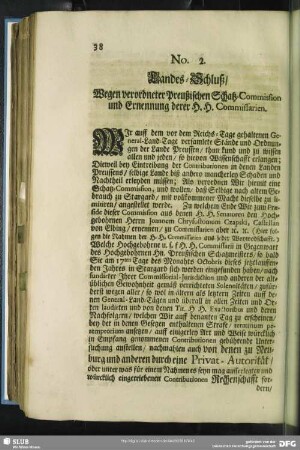 38
No. 2.
Landes-Schluß/
Wegen verordneter Preußischen Schatz-Commission
und Ernennung derer H. H. Commissarien.
Wir auff dem vor dem Reichs-Tage gehaltenen Ge-
neral-Land-Tage versamlete Stände und Ordnun-
gen der Lande Preussen/ thun kund und zu wissen
allen und jeden/ so hievon Wissenschafft erlangen;
Dieweil bey Eintreibung der Contributionen in denen Landen
Preussens/ selbige Lande biß anhero mancherley Schaden und
Nachtheil erleyden müssen; Als verordnen Wir hiemit eine
Schatz-Commission, und wollen/ daß Selbige nach altem Ge-
brauch zu Stangard/ mit vollkommener Macht dieselbe zu
angestellet werde. Zu welchem Ende Wir zum
dieser Commission aus denen H. H. Senatoren den Hoch-
gebohrnen Herrn
von Elbing/ ernennen/ zu Commissarien aber u. z. (Hier fol-
gen die Nahmen der H. H. Commissarien aus jeder Woywodschafft.)
Welche Hochgebohrne u. s. f. H. H. Commissarii in Gegenwart
des Hochgebohrnen Hn. Preußischen Schatzmeisters/ so bald
Sie am 17ten Tage des Monahts Octobris dieses
den Jahres in Stangard sich werden eingefunden haben/ nach
fundirter Ihrer Commissorial-Jurisdiction und anderen der alt-
üblichen Gewohnheit gemäß verrichteten Solennitäten/
derst wegen aller/ so wol in allen als letztern Zeiten auff de-
nen General-Land-Tagen und überall in allen Zeiten und Or-
ten laudirten und von denen Tit. H. H. Exactoribus und deren
Nachfolgern/ welchen Wir auff benanten Tag zu erscheinen/
bey der in denen Gesetzen enthaltenen Straffe
peremptorium ansetzen/ auff einigerley Art und Weise würcklich
in Empfang genommenen Contributionen gebührende Unter-
suchung anstellen/ nachmahlen auch von denen zu Neu-
burg und anderen durch eine Privat-Autorität/
oder unter was für einem Nahmen es seyn mag ausserlesten und
würcklich eingetriebenen Contributionen Rechenschafft for-
dern/
SLUB
Wir führen Wissen.